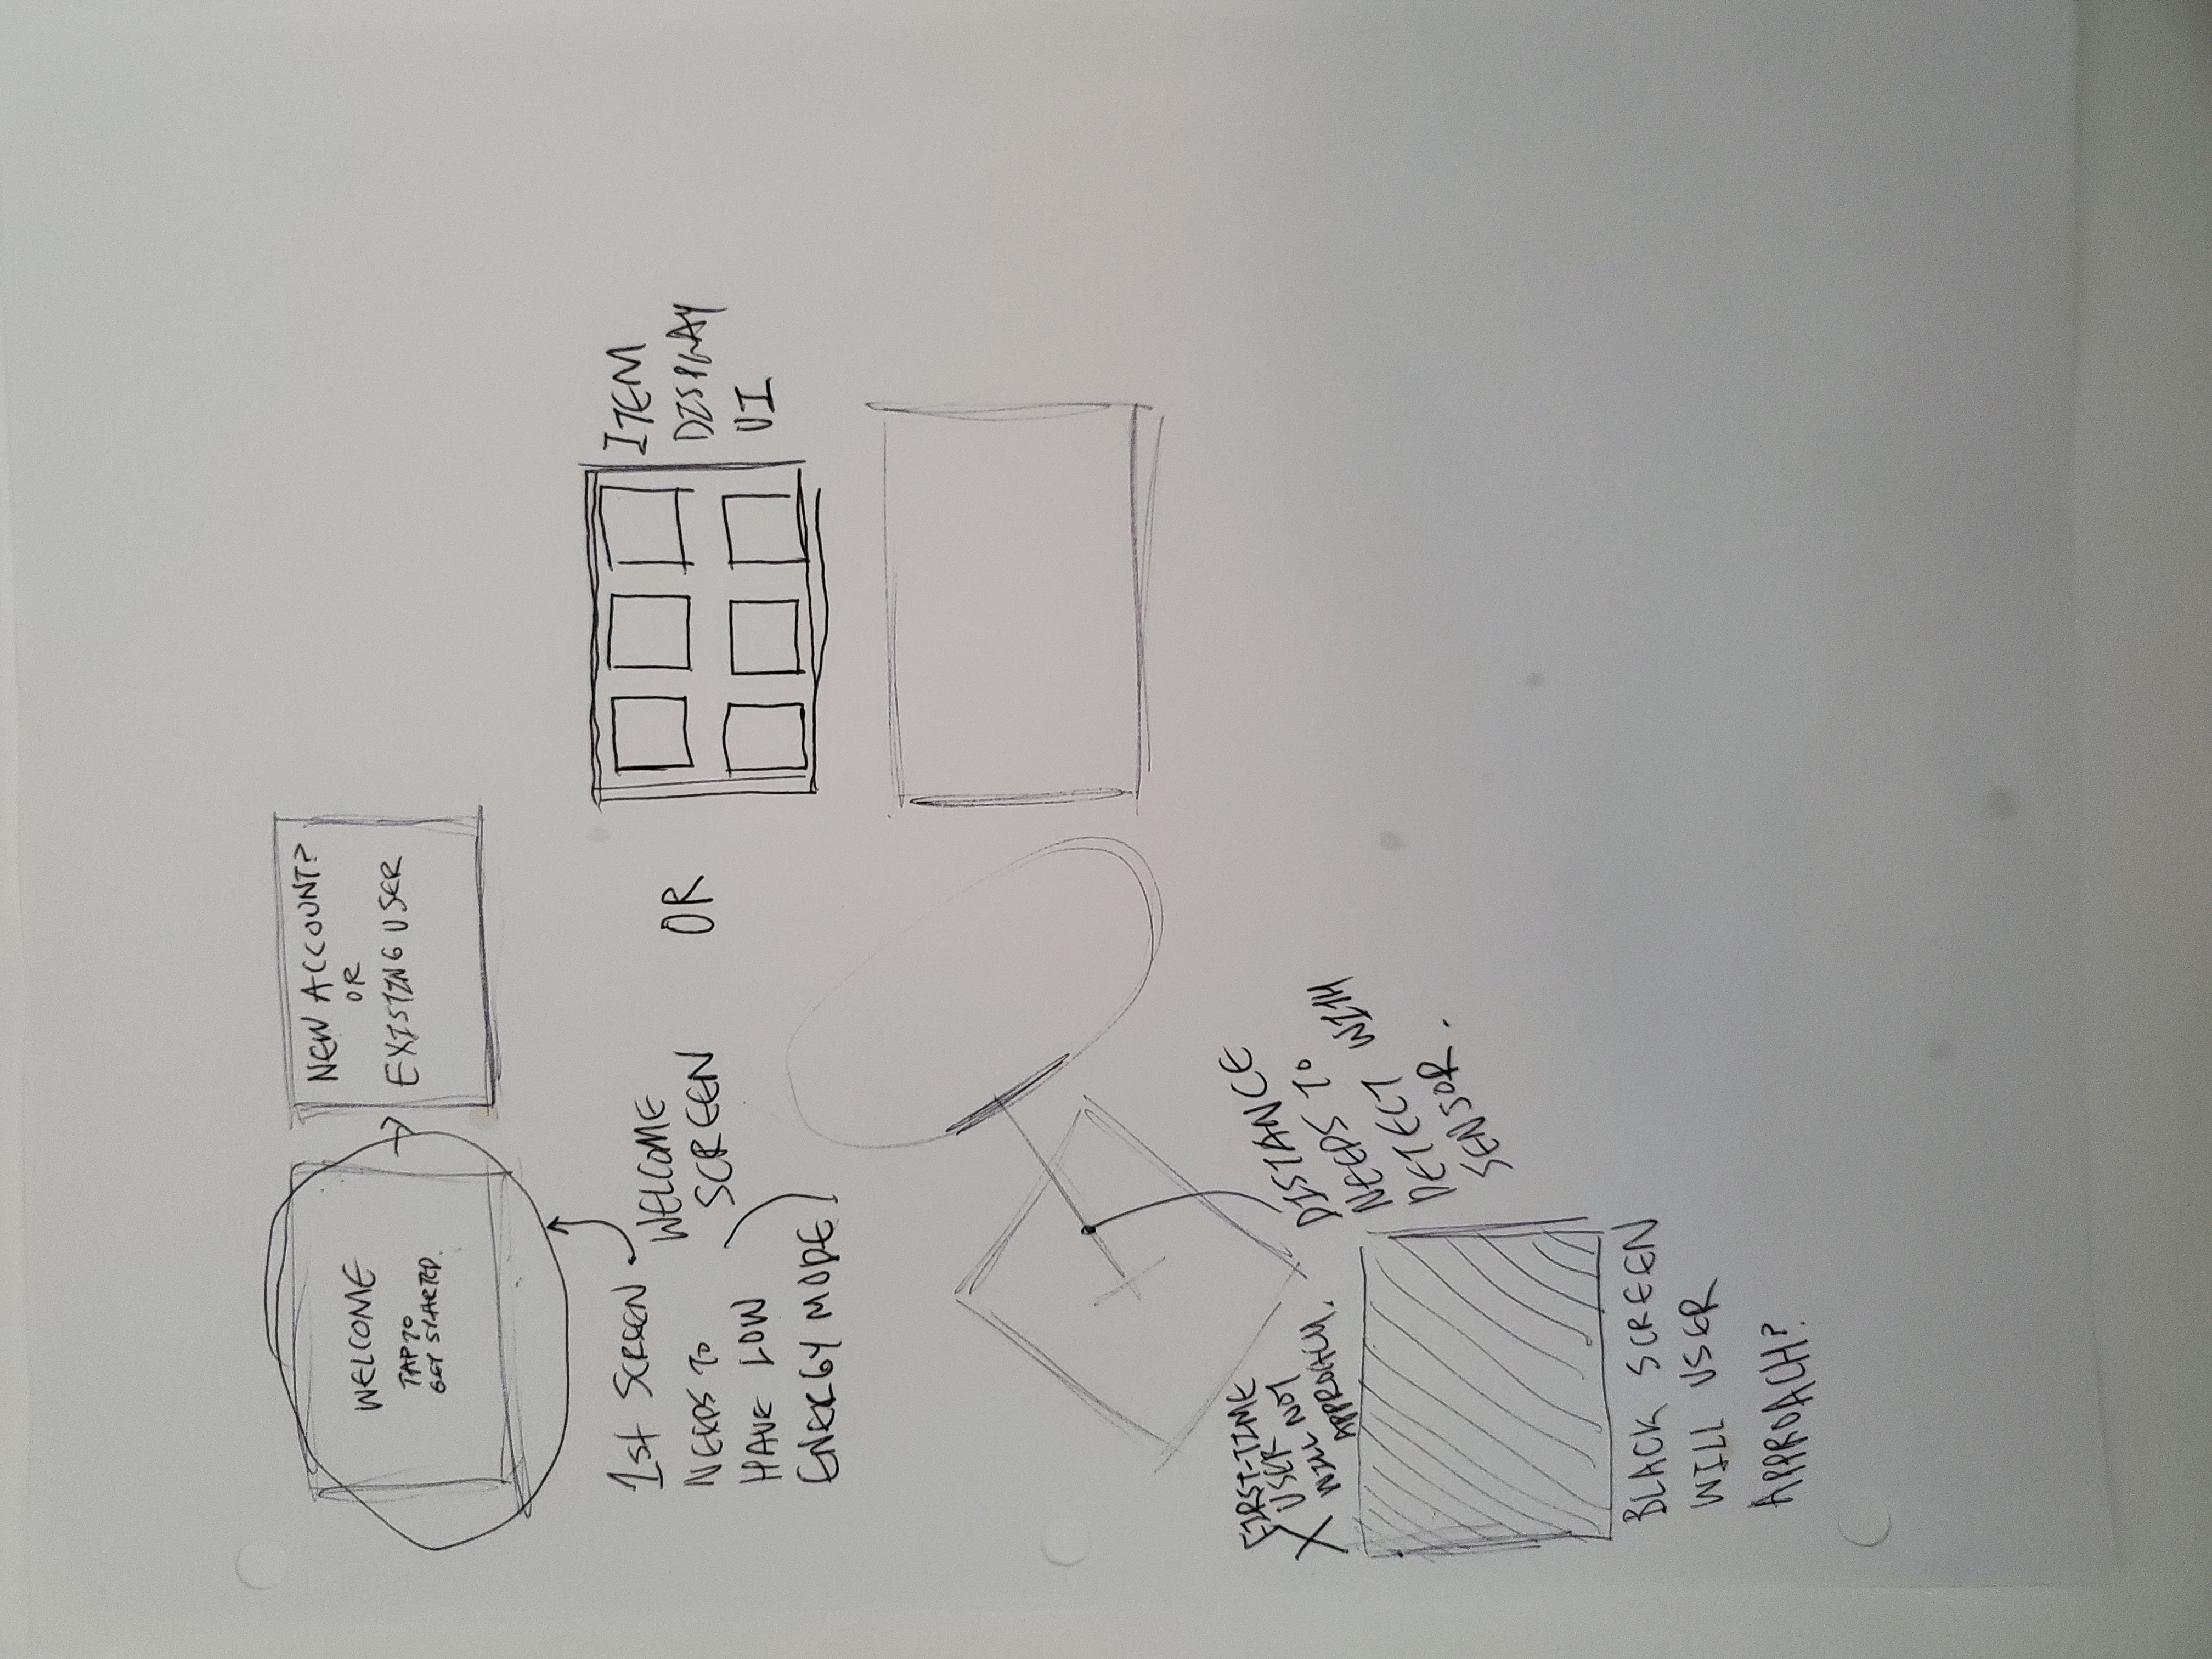 WELCOME
TAP TO
GET STARTED.
NEW ACCOUNT?
OR
EXISTING USER
1st SCREEN
NEEDS TO
HAVE LOW
ENERGY MODE
WELCOME
SCREEN
OR
ITEM
DISPLAY
UI
FIRST-TIME
USER
WILL NOT
APPROACH.
X
DISTANCE
NEEDS TO
DETECT WITH
SENSOR.
BLACK SCREEN
WILL USER
APPROACH?